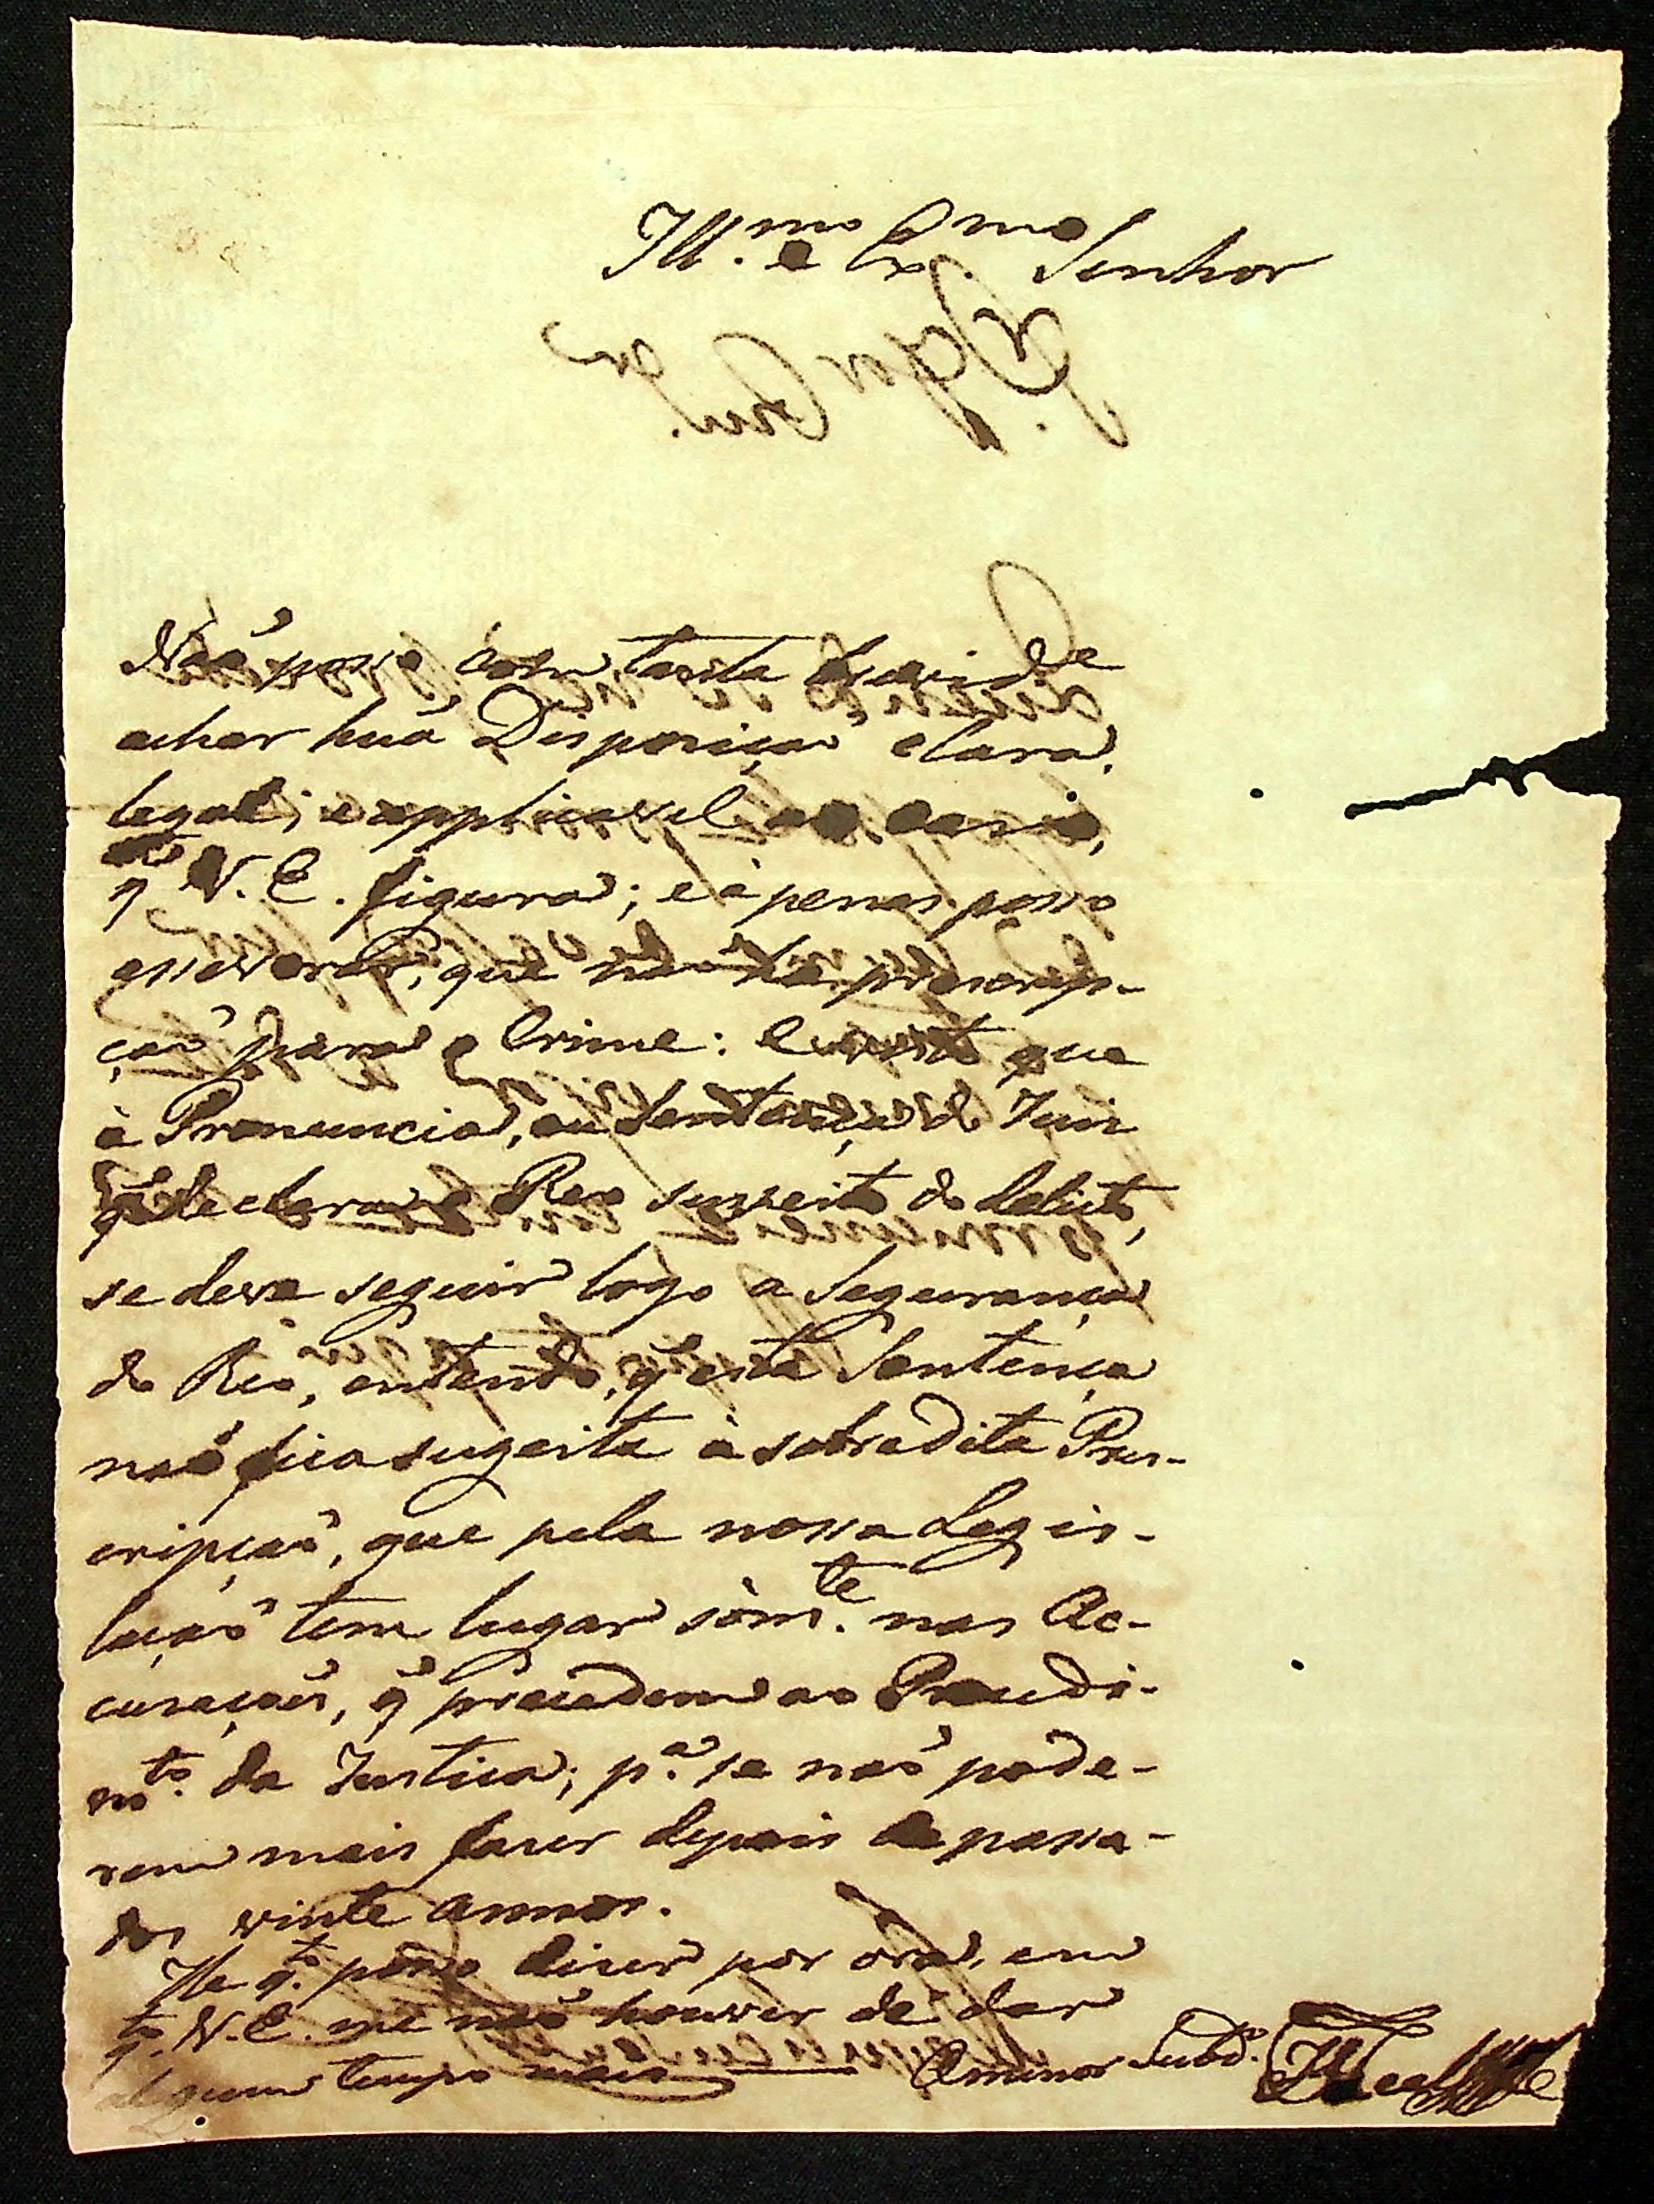 Ill.mo e Ex.mo Senhor
Naõ posso com tanta brevid.e
achar huã Disposiçaõ clara,
legal, e applicavel ao caso,
q̃ V. E. figura; e àpenas posso
asseverar, que naõ ha prescrip-
çaõ para o Crime: e visto que
à Pronuncia, ou Sentença do Juiz
q̃ declara o Reo sugeito do delicto,
se deve seguir logo a Segurança
do Reo, entendo, q̃ esta Sentença
naõ fica sugeita à sobredita Pres-
cripçaõ, que pela nossa Legis-
laçaõ tem lugar sòm.te nas Ac-
cusaçoẽs, q̃ precedem ao Procedi-
m.to da Justica; p.a se naõ pode-
rem mais fazer depois de passa-
dos vinte annos.
He q.to posso dizer por ora, em
q.to V. E. me naõ houver de dar
algum tempo mais
O menor Subd.o